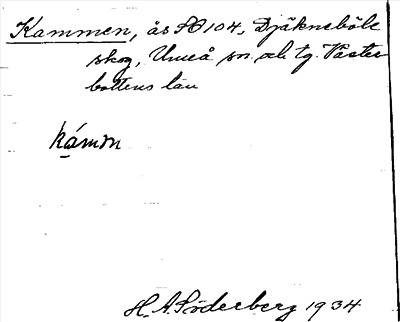 Kammen, ås SO 104, Djäkneböle
skog, Umeå sn. och tg. Väster
bottens län
kámm
H. A. Söderberg 1934